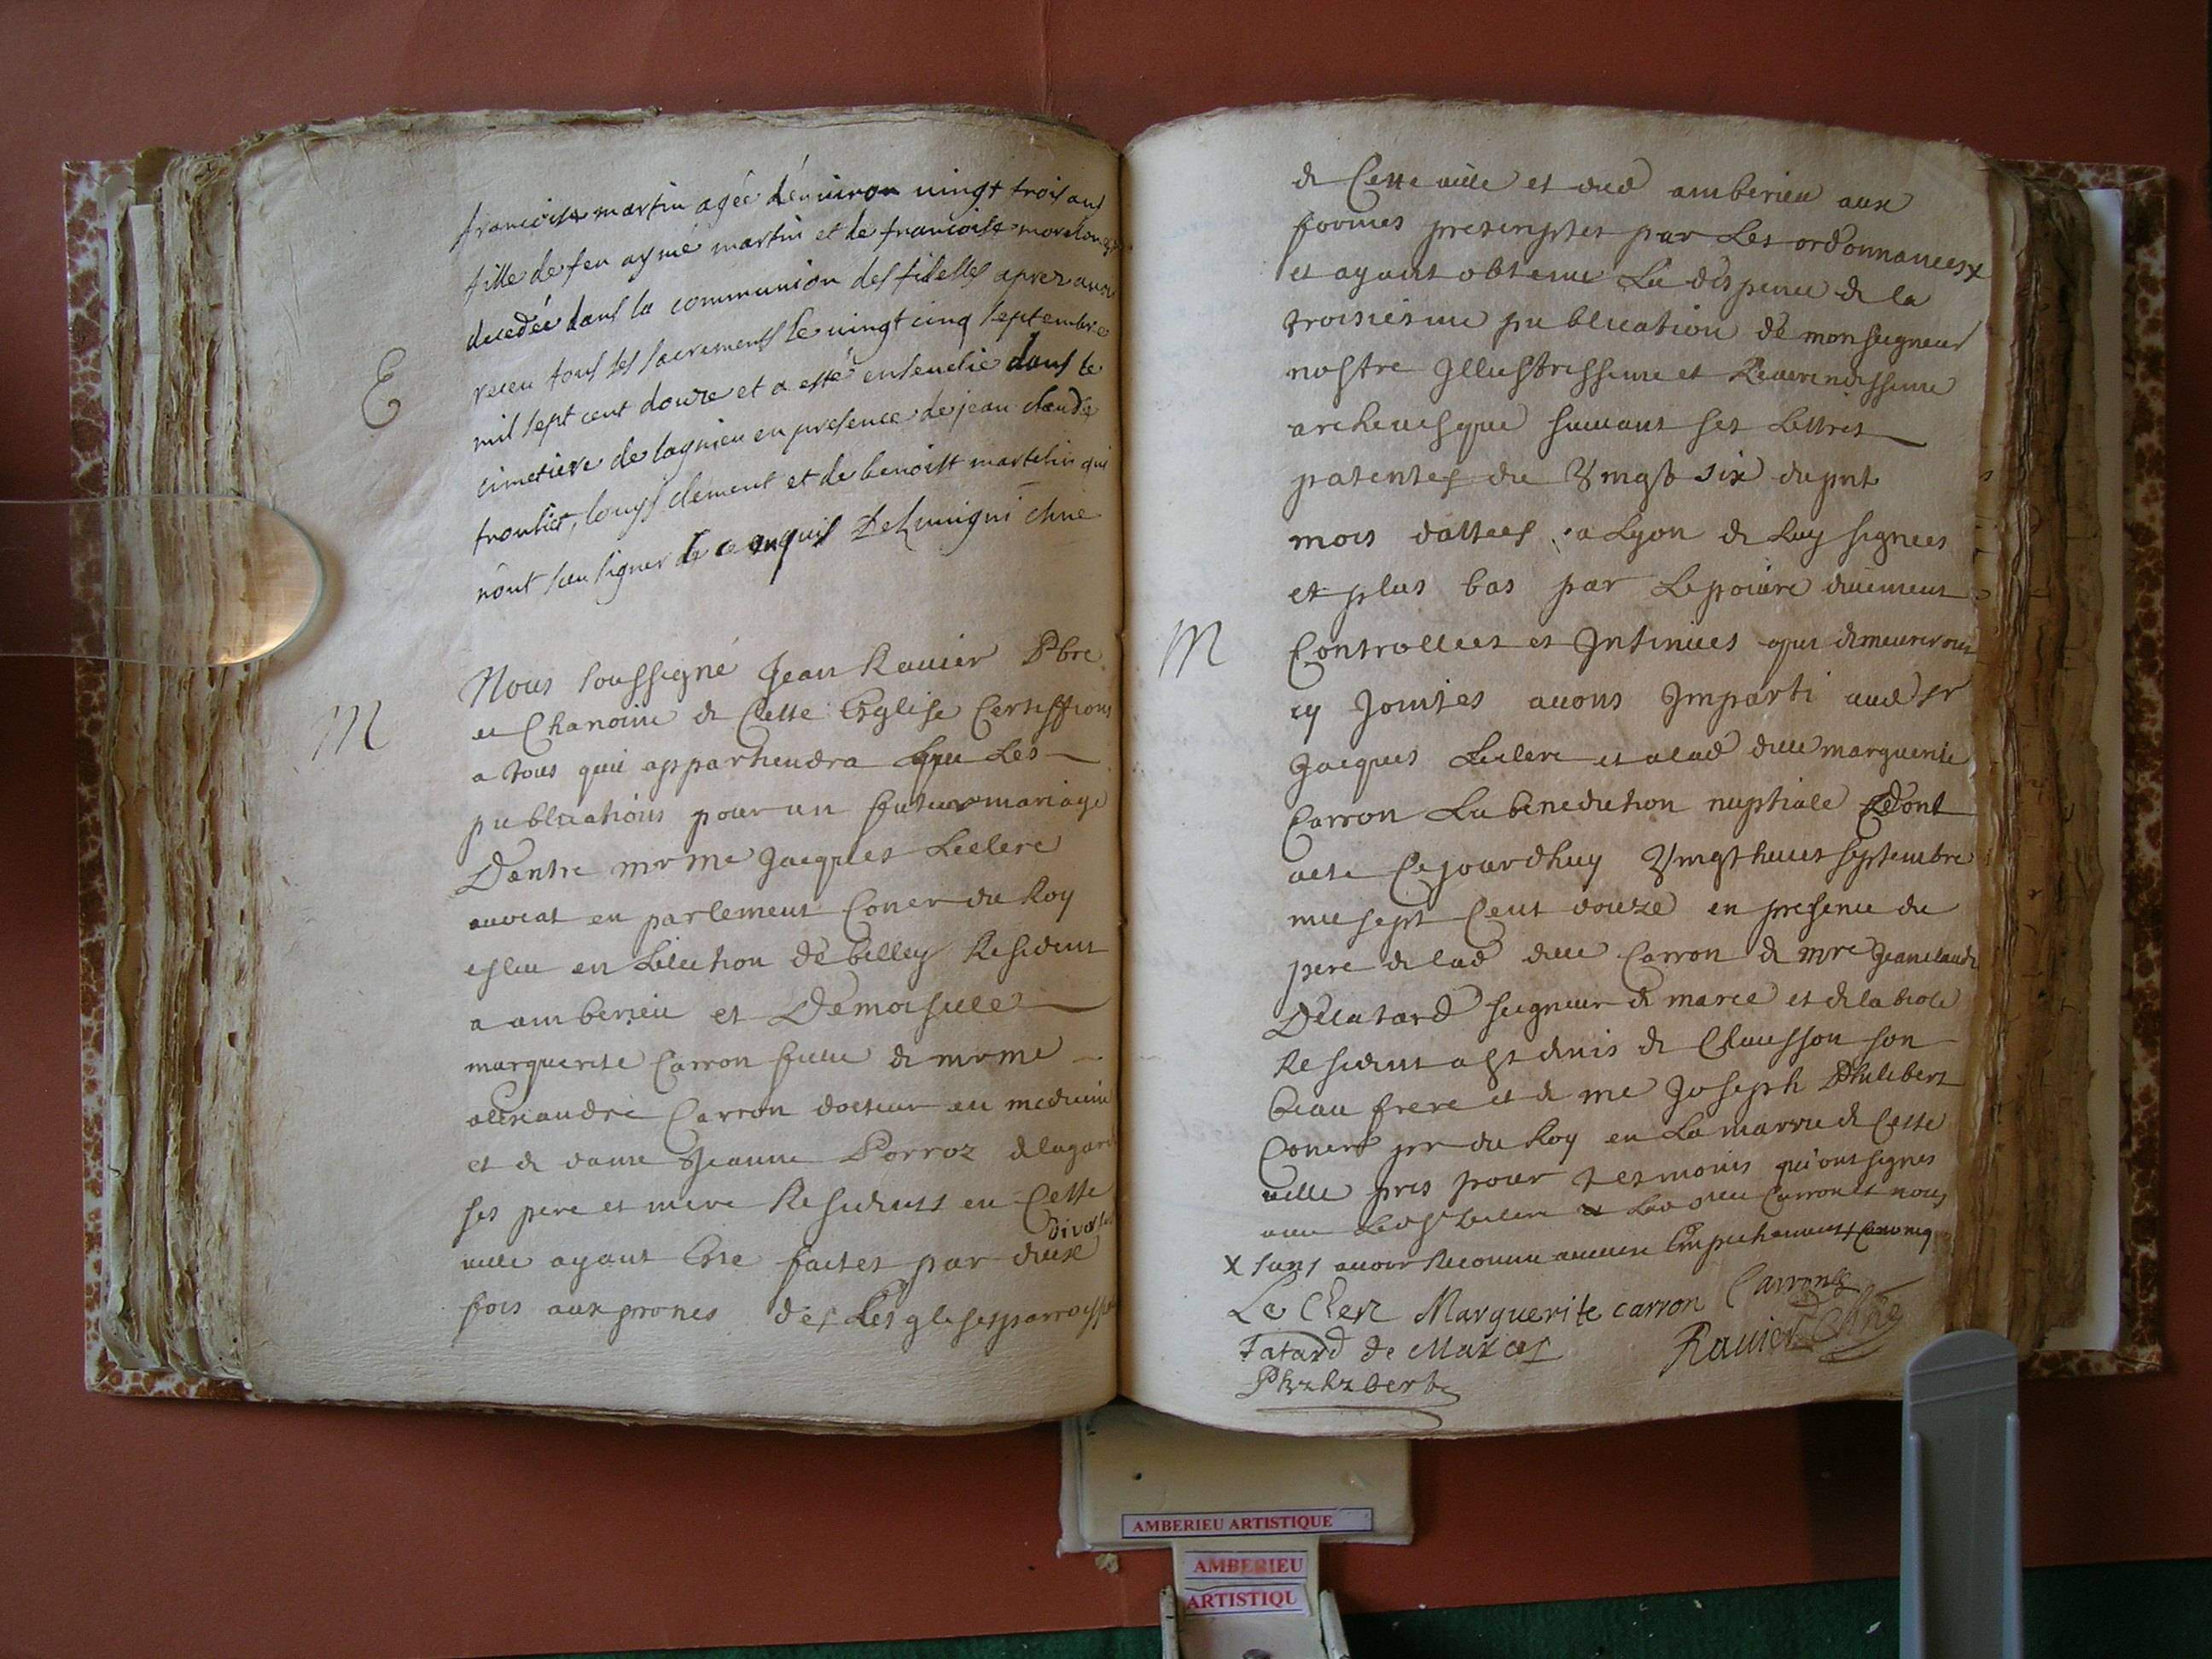 francoise martin agée d'enuiron uingt trois ans
fille de feu aymé martin et de francoise
decedée dans la communion des fidelles aprez auoir
E
receu tous ses sacrements le uingt cinq septembre
mil sept cent douze et a esté enseuelie dans le
cimetiere de lagnieu en presence de jean claude
trouliet, louys clement et de benoist martelin qui
n'ont sceu signer de ce enquis chne
Nous soussigné Jean Rauier Pbre
M
et Chanoine de Cette Eglise Certiffions
a tous quil appartiendra que Les
publications pour un futur mariage
D'entre mr me Jacques Leclerc
auocat en parlement Coner du Roy
esleu en Lélection dé belley Resident
a amberieu et Démoiselle
marguerite Carron fille de mr me
alexandre Carron docteur en medecine
et de dame Jeanne Porroz delagarde
ses pere et mere Residents en Cette
diverses
uille ayant Este faites par deux
fois aux prones des Esglises parroyss
de Cette uille et dud amberieu aux
formes prescriptes par Les ordonnances x
et ayant obtenu La dispence de la
troisiesme publication dé monseigneur
nostre Jllustrissime et Reuerendissime
archeuesque suiuant ses Lettres
patentes du Vingt six du pnt
mois dattees a Lyon de Luy signees
et plus bas par Lepoiure duement
M
Controllees et Jnsinuees qui demeureront
cy Jointes auons Jmparti aud sr
Jacques Leclerc et a lad dlle marguerite
Carron La benediction nuptiale dont
acte Cejourdhuy Vingt huit septembre
mil sept Cent douze en presence du
pere de lad dlle Carron de mre Jean claude
Détatard seigneur de marce et de labiole
Resident a st denis de Chausson son
beau frere et de me Joseph Philibert
Coner pr du Roy en La mairie de Cette
uille pris pour tesmoins qui ont signes
auec Led sr Leclerc et Lad dlle Carron et nous
x sans auoir Reconnu aucun Empechement Canoniq
Le Clerc Marguerite carron Carron
Tatard de Marces Rauier Chne
Philibert
AMBERIEU ARTISTIQUE
AMBERIEU
ARTISTIQU